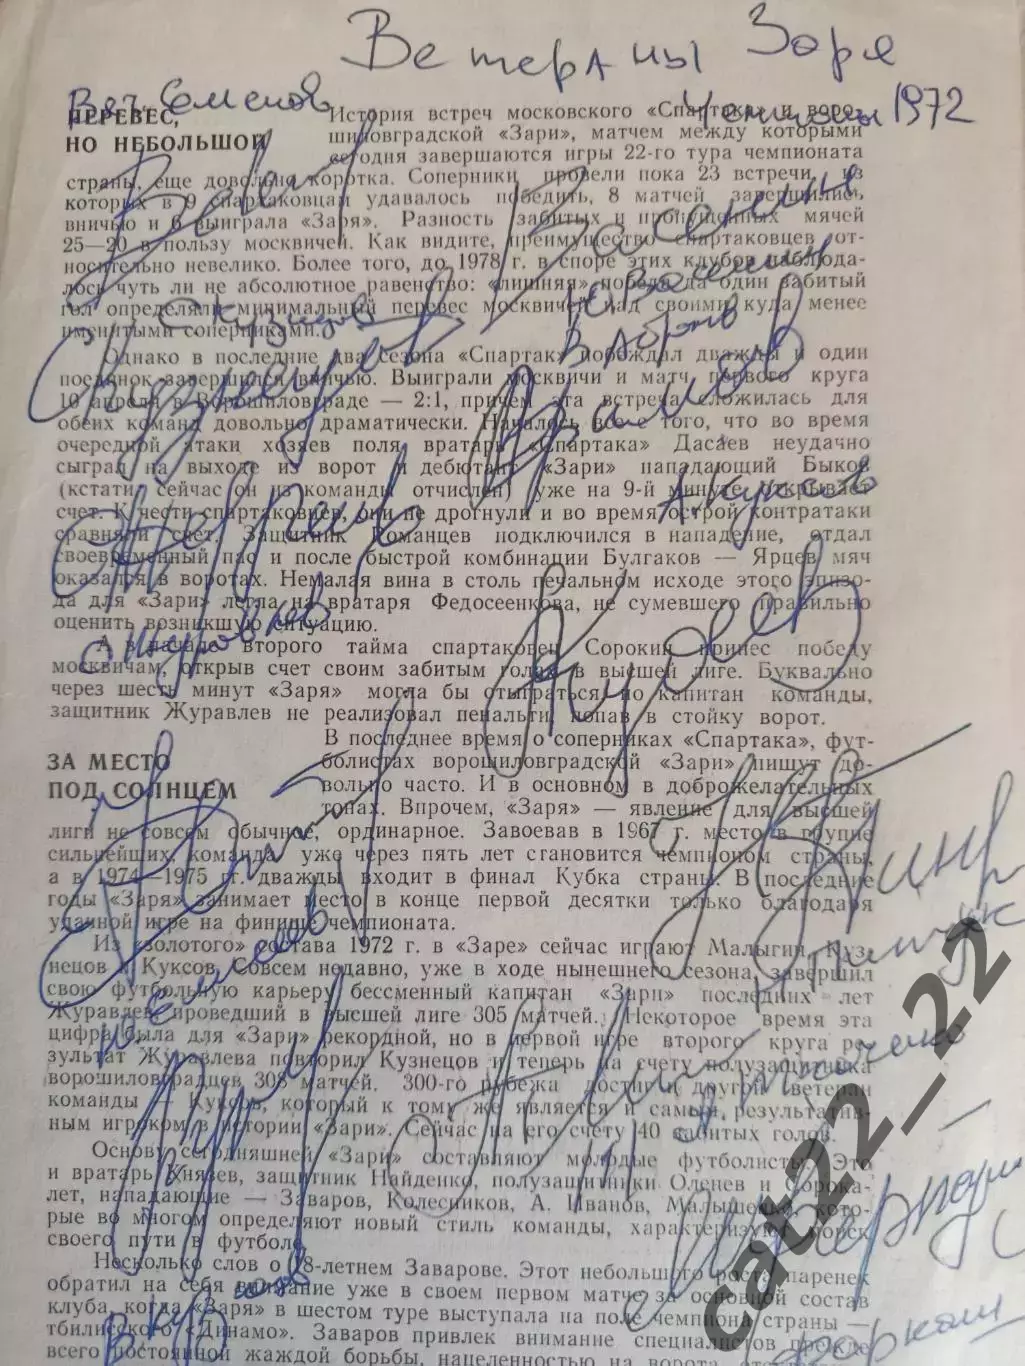 Ветераны Заря
Вяч. Семенов
Чемпионы 1972
ПЕРЕВЕС,
НО НЕБОЛЬШОЙ
История встреч московского «Спартака» и воро-
шиловградской «Зари», матчем между которыми
сегодня завершаются игры 22-го тура чемпионата
страны, еще довольно коротка. Соперники провели пока 23 встречи, из
которых в 9 спартаковцам удавалось победить, 8 матчей завершились
вничью и 6 выиграла «Заря». Разность забитых и пропущенных мячей
25—20 в пользу москвичей. Как видите, преимущество спартаковцев от-
носительно невелико. Более того, до 1978 г. в споре этих клубов наблюда-
лось чуть ли не абсолютное равенство: «лишняя» победа да один забитый
гол определяли минимальный перевес москвичей над своими куда менее
именитыми соперниками.
С Кузнецов
Ю Васенин
В Абрамов
Однако в последние два сезона «Спартак» побеждал дважды и один
поединок завершился вничью. Выиграли москвичи и матч первого круга
10 апреля в Ворошиловграде — 2:1, причем эта встреча сложилась для
обеих команд довольно драматически. Началось все с того, что во время
очередной атаки хозяев поля вратарь «Спартака» Дасаев неудачно
сыграл на выходе из ворот и дебютант «Зари» нападающий Быков
(кстати, сейчас он из команды отчислен) уже на 9-й минуте открывает
счет. К чести спартаковцев, они не дрогнули и во время острой контратаки
сравняли счет. Защитник Романцев подключился в нападение, отдал
своевременный пас и после быстрой комбинации Булгаков — Ярцев мяч
оказался в воротах. Немалая вина в столь печальном исходе этого эпизо-
да для «Зари» легла на вратаря Федосеенкова, не сумевшего правильно
оценить возникшую ситуацию.
А Куксов
А в начале второго тайма спартаковец Сорокин принес победу
москвичам, открыв счет своим забитым голам в высшей лиге. Буквально
через шесть минут «Заря» могла бы отыграться, но капитан команды,
защитник Журавлев не реализовал пенальти, попав в стойку ворот.
ЗА МЕСТО
ПОД СОЛНЦЕМ
В последнее время о соперниках «Спартака», фут-
болистах ворошиловградской «Зари» пишут до-
вольно часто. И в основном в доброжелательных
тонах. Впрочем, «Заря» — явление для высшей
лиги не совсем обычное, ординарное. Завоевав в 1967 г. место в группе
сильнейших, команда уже через пять лет становится чемпионом страны,
а в 1974—1975 гг. дважды входит в финал Кубка страны. В последние
годы «Заря» занимает место в конце первой десятки только благодаря
удачной игре на финише чемпионата.
Из «золотого» состава 1972 г. в «Заре» сейчас играют Малыгин, Куз-
нецов и Куксов. Совсем недавно, уже в ходе нынешнего сезона, завершил
свою футбольную карьеру бессменный капитан «Зари» последних лет
Журавлев, проведший в высшей лиге 305 матчей. Некоторое время эта
цифра была для «Зари» рекордной, но в первой игре второго круга ре-
зультат Журавлева повторил Кузнецов и теперь на счету полузащитника
ворошиловградцев 308 матчей. 300-го рубежа достиг и другой ветеран
команды — Куксов, который к тому же является и самым результатив-
ным игроком в истории «Зари». Сейчас на его счету 40 забитых голов.
Основу сегодняшней «Зари» составляют молодые футболисты. Это
и вратарь Князев, защитник Найденко, полузащитники Оленев и Сорока-
лет, нападающие — Заваров, Колесников, А. Иванов, Малышенко, кото-
рые во многом определяют новый стиль команды, характеризуют поиск
своего пути в футболе.
Несколько слов о 18-летнем Заварове. Этот небольшого роста паренек
обратил на себя внимание уже в своем первом матче за основной состав
клуба, когда «Заря» в шестом туре выступала на поле чемпиона страны —
тбилисского «Динамо». Заваров привлек внимание специалистов прежде
всего постоянной жаждой борьбы, нацеленностью на ворота
cat22_22